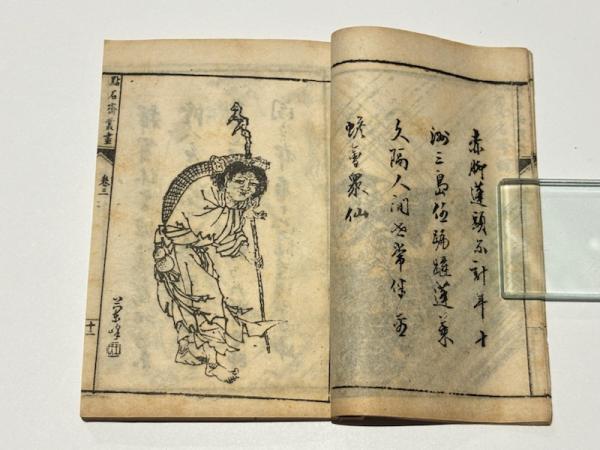 赤脚蓬頭不計年十
洲三島任蹁躚蓬萊
久隔人间世常伴金
蟾會衆仙
點石齋叢畫
卷三
蘭峰